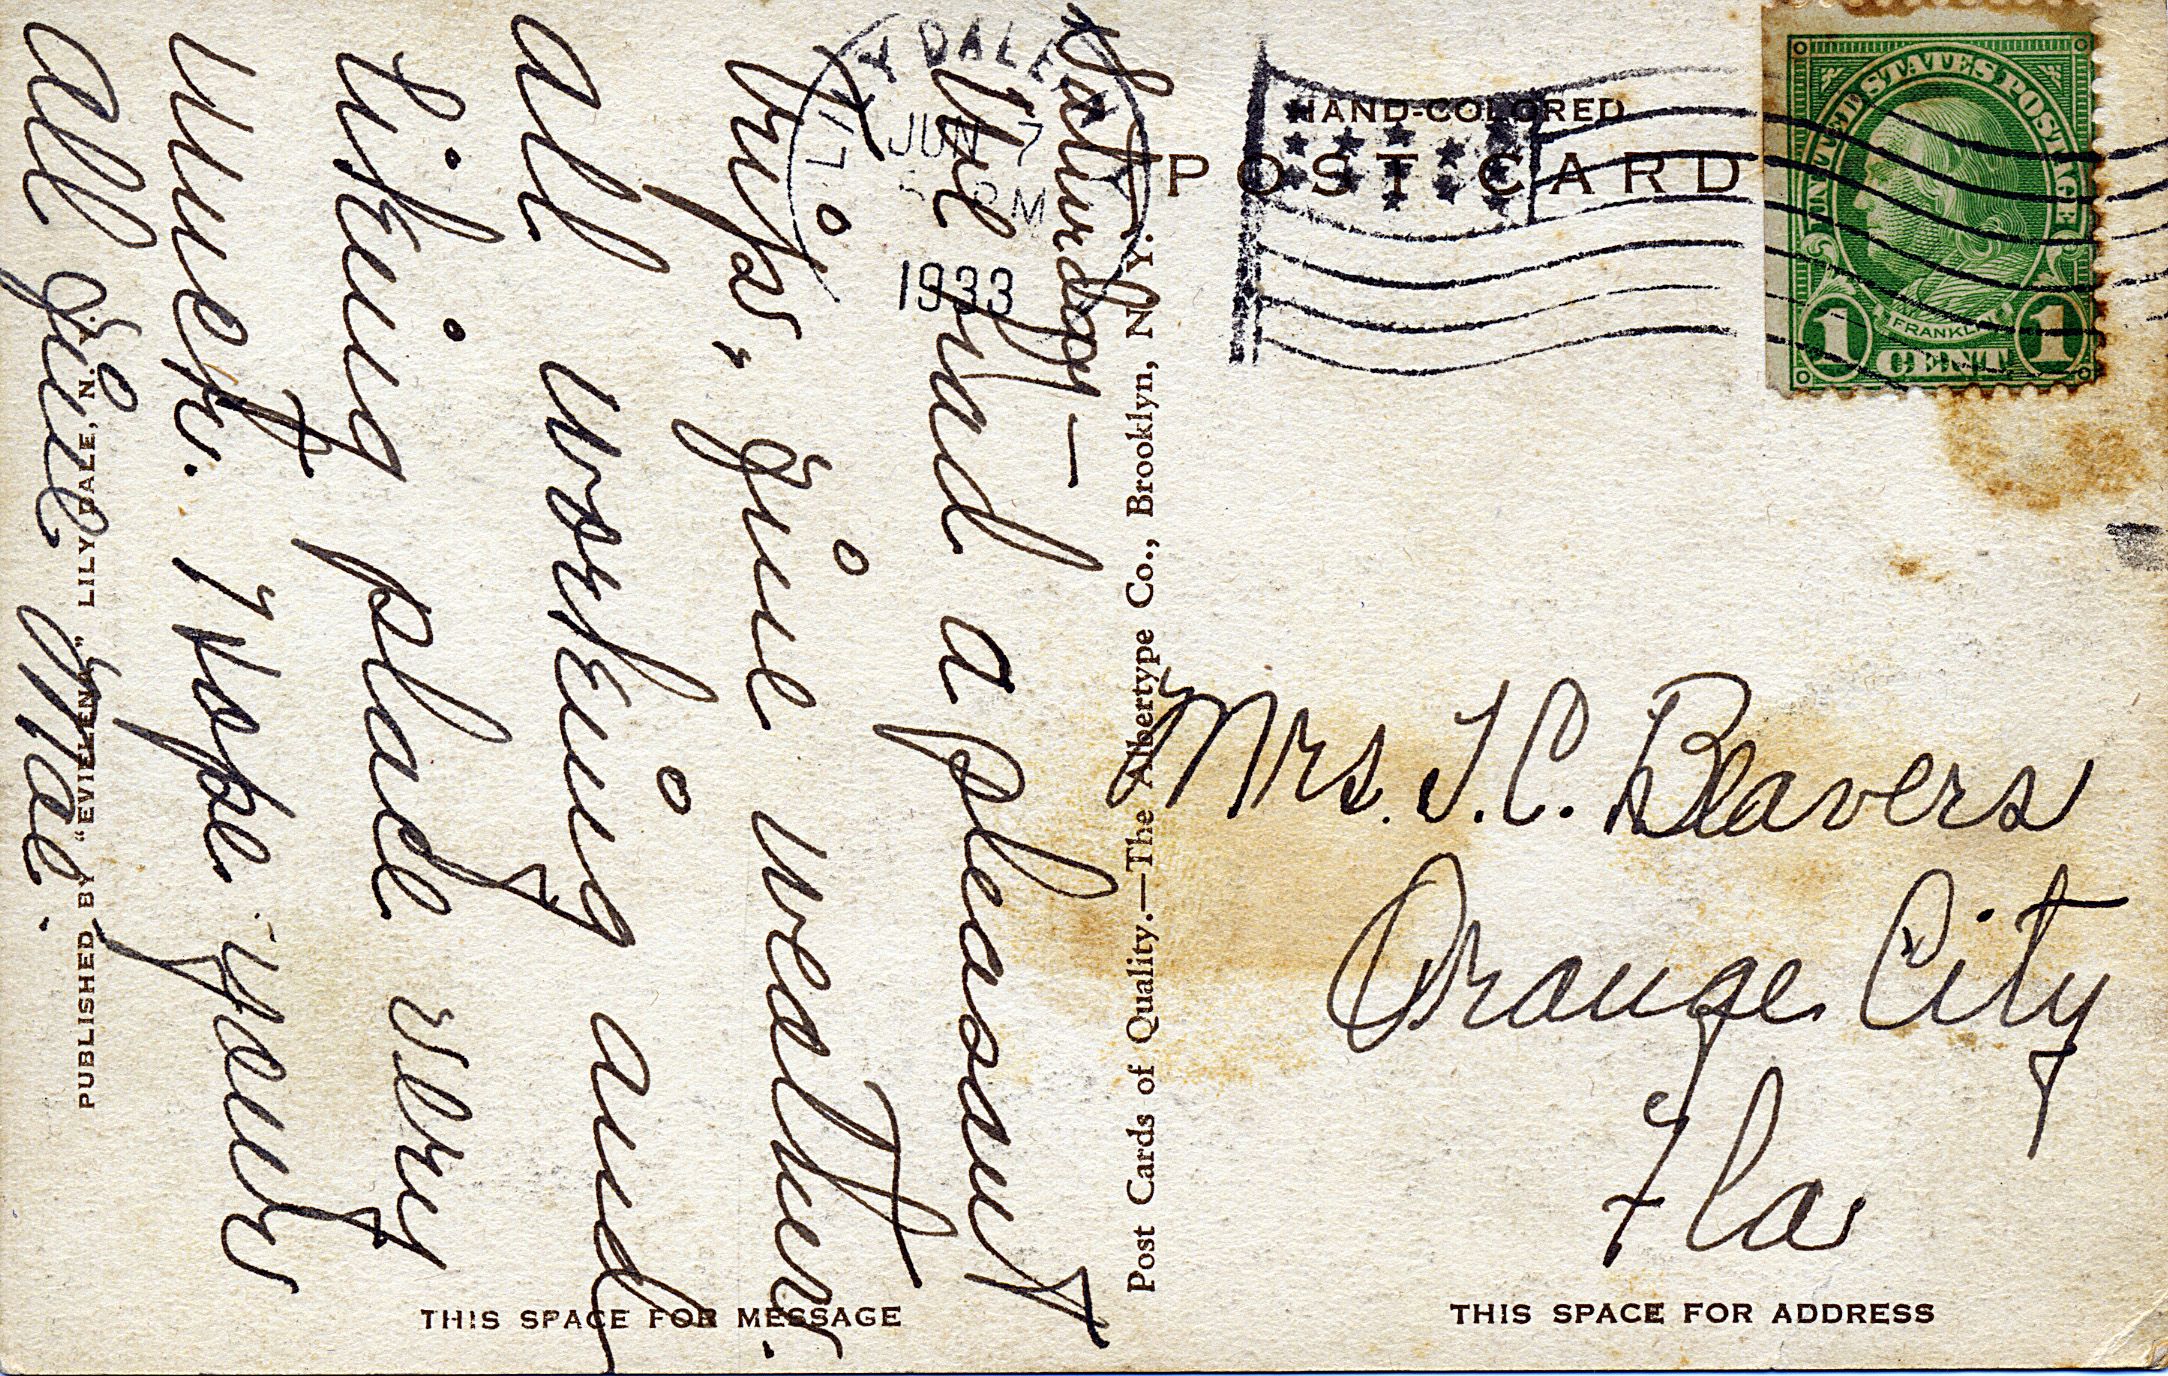 HAND-COLORED
POST CARD
UNITED STATES POSTAGE
FRANKLIN
1 CENT 1
LILY DALE
JUN 7
PM
1933
N.Y.
Saturday—
We had a pleasant
trip, fine weather.
all working and
liking place very
much. I hope your
all fine Mae.
Mrs. J. C. Beavers
Orange City
Fla
Post Cards of Quality.—The Albertype Co., Brooklyn, N. Y.
PUBLISHED BY "EVIELENA" LILY DALE, N. Y.
THIS SPACE FOR MESSAGE
THIS SPACE FOR ADDRESS